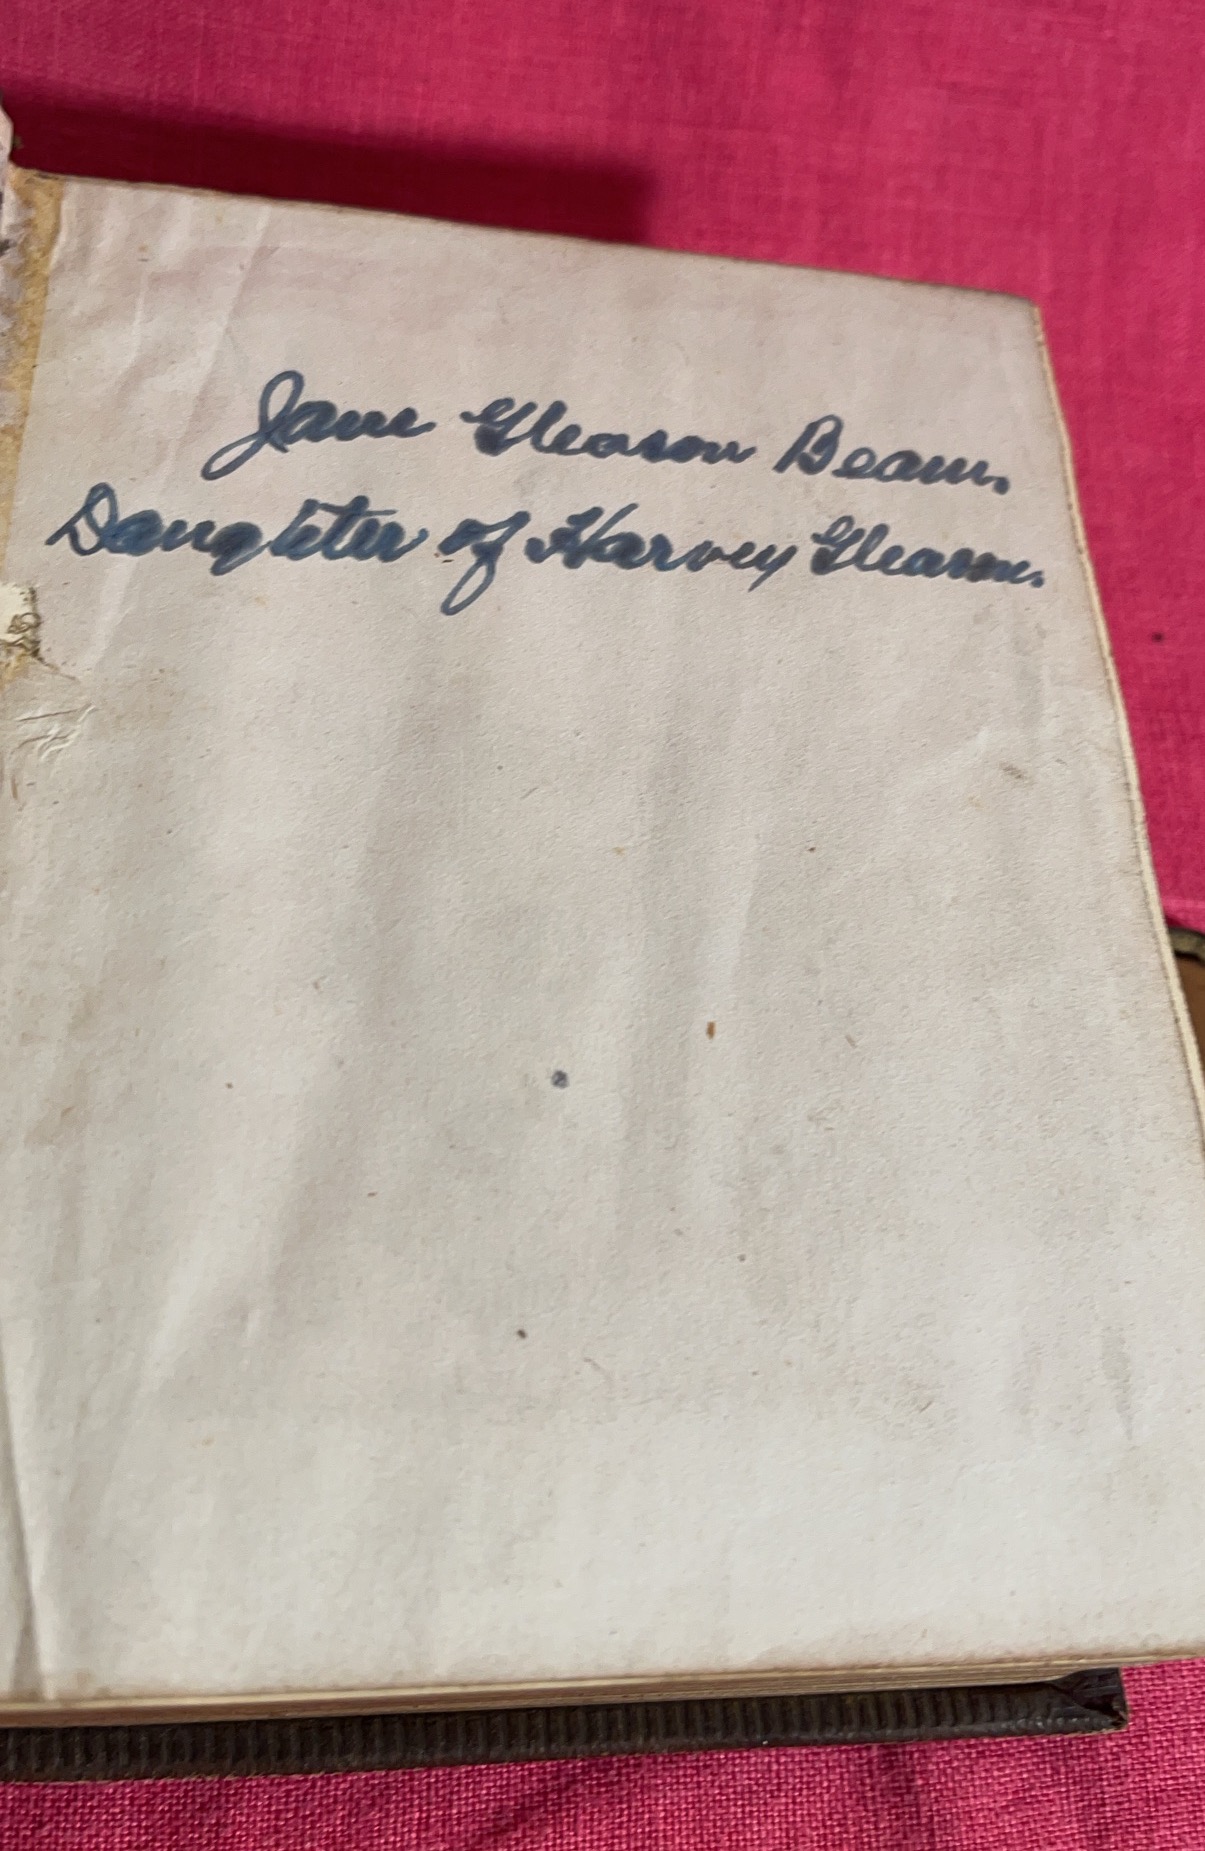 Jane Gleason Beam.
Daughter of Harvey Gleason.